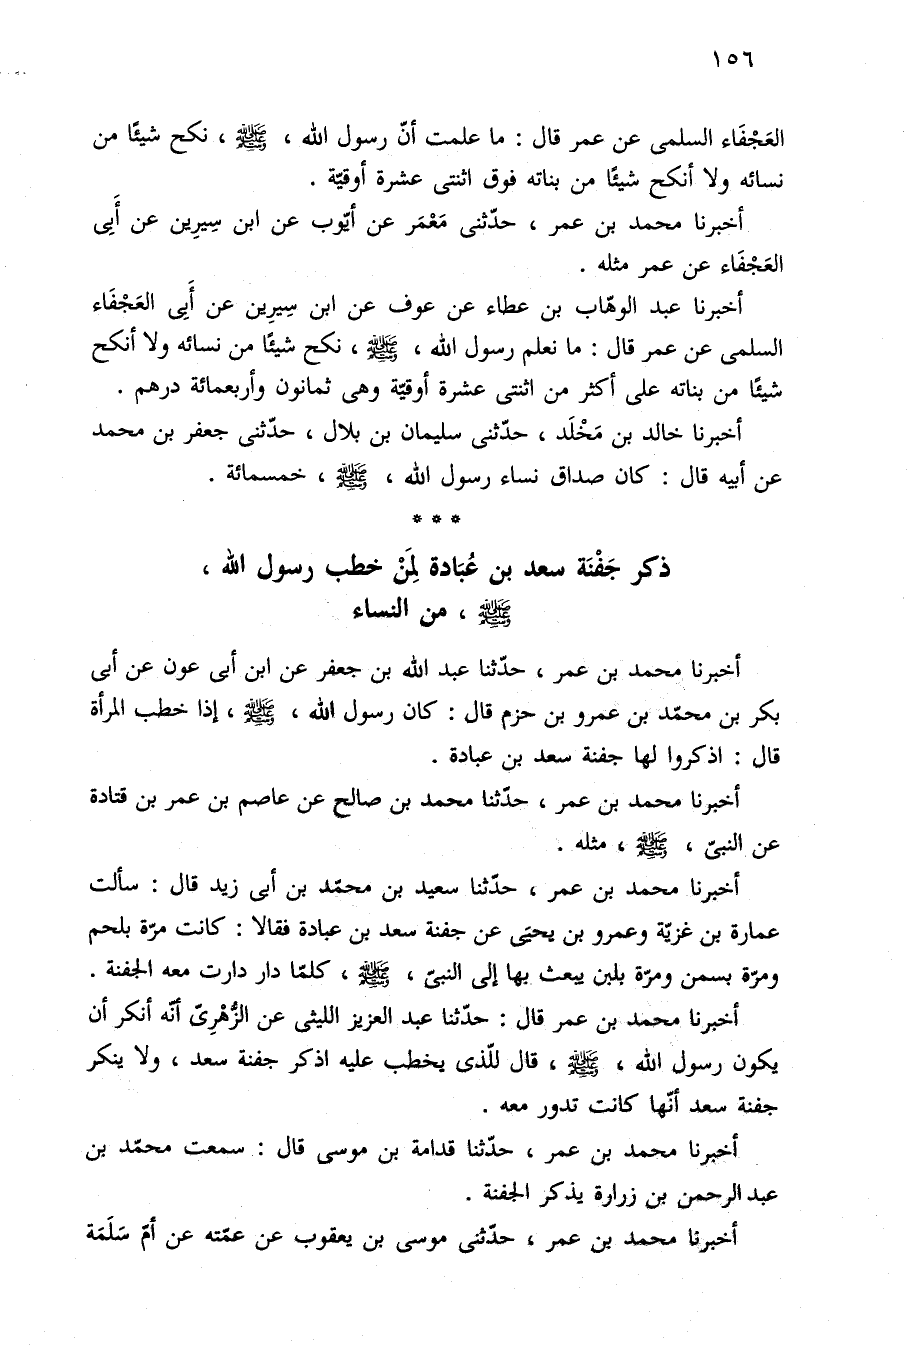 ١٥٦
العَجْفَاء السلمى عن عمر قال : ما علمت أنّ رسول الله ، ﷺ ، نكح شيئًا من
نسائه ولا أنكح شيئًا من بناته فوق اثنتى عشرة أوقيّة .
أخبرنا محمد بن عمر ، حدّثنى مَعْمَر عن أيّوب عن ابن سِيرِين عن أَبِى
العَجْفَاء عن عمر مثله .
أخبرنا عبد الوهّاب بن عطاء عن عوف عن ابن سِيرِين عن أَبِى العَجْفَاء
السلمى عن عمر قال : ما نعلم رسول الله ، ﷺ ، نكح شيئًا من نسائه ولا أنكح
شيئًا من بناته على أكثر من اثنتى عشرة أوقيّة وهى ثمانون وأربعمائة درهم .
أخبرنا خالد بن مَخْلَد ، حدّثنى سليمان بن بلال ، حدّثنى جعفر بن محمد
عن أبيه قال : كان صداق نساء رسول الله ، ﷺ ، خمسمائة .
* * *
ذكر جَفْنَة سعد بن عُبَادة لِمَنْ خطب رسول الله ،
ﷺ ، من النساء
أخبرنا محمد بن عمر ، حدّثنا عبد الله بن جعفر عن ابن أبى عون عن أبى
بكر بن محمّد بن عمرو بن حزم قال : كان رسول الله ، ﷺ ، إذا خطب المرأة
قال : اذكروا لها جفنة سعد بن عبادة .
أخبرنا محمد بن عمر ، حدّثنا محمد بن صالح عن عاصم بن عمر بن قتادة
عن النبىّ ، ﷺ ، مثله .
أخبرنا محمد بن عمر ، حدّثنا سعيد بن محمّد بن أبى زيد قال : سألت
عمارة بن غزيّة وعمرو بن يحيَى عن جفنة سعد بن عبادة فقالا : كانت مرّة بلحم
ومرّة بسمن ومرّة بلبن يبعث بها إلى النبىّ ، ﷺ ، كلمّا دار دارت معه الجفنة .
أخبرنا محمد بن عمر قال : حدّثنا عبد العزيز الليثى عن الزُّهْرِىّ أنّه أنكر أن
يكون رسول الله ، ﷺ ، قال للّذى يخطب عليه اذكر جفنة سعد ، ولا ينكر
جفنة سعد أنّها كانت تدور معه .
أخبرنا محمد بن عمر ، حدّثنا قدامة بن موسى قال : سمعت محمّد بن
عبد الرحمن بن زرارة يذكر الجفنة .
أخبرنا محمد بن عمر ، حدّثنى موسى بن يعقوب عن عمّته عن أمّ سَلَمَة